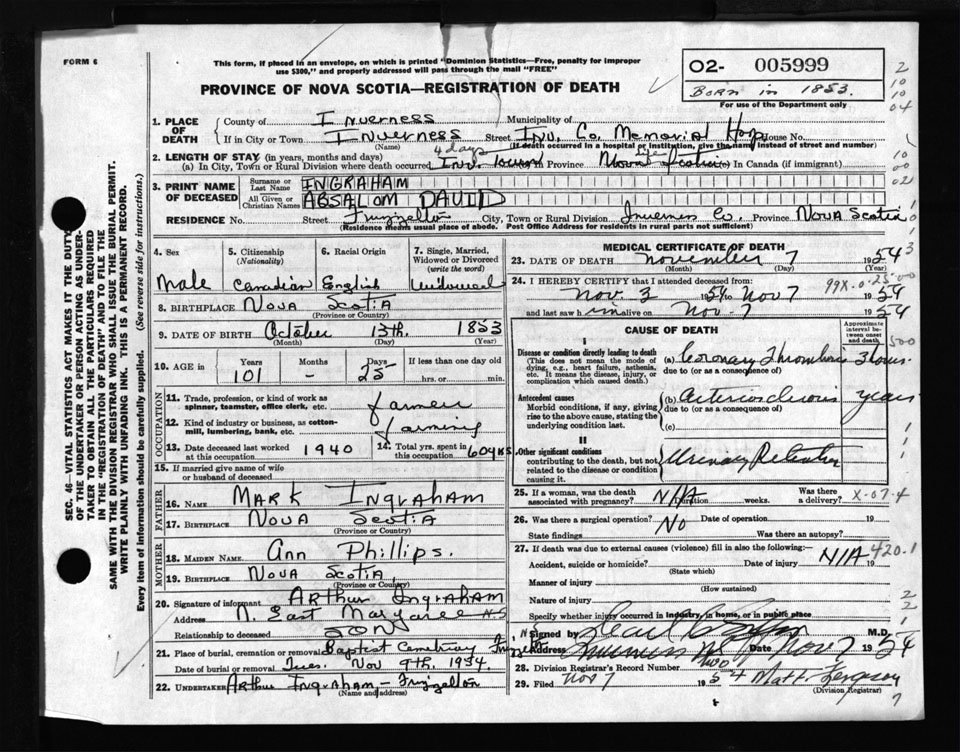 FORM 6
This form, if placed in an envelope, on which is printed "Dominion Statistics—Free, penalty for improper
use $300," and properly addressed will pass through the mail "FREE"
O2- 005999
BORN in 1853.
For use of the Department only
PROVINCE OF NOVA SCOTIA—REGISTRATION OF DEATH
1. PLACE OF DEATH
County of Inverness Municipality of
If in City or Town Inverness Street Inv. Co. Memorial Hosp House No.
(Name) (If death occurred in a hospital or institution, give the name instead of street and number)
2. LENGTH OF STAY (in years, months and days) 4 days
(a) In City, Town or Rural Division where death occurred Inv. Province Nova Scotia In Canada (if immigrant)
3. PRINT NAME OF DECEASED
Surname or Last Name INGRAHAM
All Given or Christian Names ABSALOM DAVID
RESIDENCE No. Street Frizzelton City, Town or Rural Division Inverness Co. Province Nova Scotia
(Residence means usual place of abode. Post Office Address for residents in rural parts not sufficient)
4. Sex Male
5. Citizenship (Nationality) Canadian
6. Racial Origin English
7. Single, Married, Widowed or Divorced (write the word) Widowed
8. BIRTHPLACE Nova Scotia
(Province or Country)
9. DATE OF BIRTH October 13th. 1853
(Month) (Day) (Year)
10. AGE in Years 101 Months - Days 25 If less than one day old hrs. or min.
OCCUPATION
11. Trade, profession, or kind of work as spinner, teamster, office clerk, etc. farmer
12. Kind of industry or business, as cotton-mill, lumbering, bank, etc. farming
13. Date deceased last worked at this occupation 1940
14. Total yrs. spent in this occupation 60 yrs
15. If married give name of wife or husband of deceased
FATHER
16. NAME Mark Ingraham
17. BIRTHPLACE Nova Scotia
(Province or Country)
MOTHER
18. MAIDEN NAME Ann Phillips.
19. BIRTHPLACE Nova Scotia
(Province or Country)
20. Signature of informant Arthur Ingraham
Address N. East Margaree N.S
Relationship to deceased SON
21. Place of burial, cremation or removal Baptist Cemetriay
Date of burial or removal Tues. Nov 9th. 1954.
22. UNDERTAKER Arthur Ingraham - Frizzelton
(Name and address)
MEDICAL CERTIFICATE OF DEATH
23. DATE OF DEATH November 7 1954
(Month) (Day) (Year)
24. I HEREBY CERTIFY that I attended deceased from:
Nov. 3 1954 to Nov 7 1954
and last saw him alive on Nov. 7 1954
CAUSE OF DEATH
Approximate interval between onset and death
I
Disease or condition directly leading to death
(This does not mean the mode of dying, e.g., heart failure, asthenia, etc. It means the disease, injury, or complication which caused death.)
(a) Coronary Thrombosis 3 hours
due to (or as a consequence of)
Antecedent causes
Morbid conditions, if any, giving rise to the above cause, stating the underlying condition last.
(b) arteriosclerosis years
due to (or as a consequence of)
(c)
II
Other significant conditions
contributing to the death, but not related to the disease or condition causing it.
Urinary Retention
25. If a woman, was the death associated with pregnancy? N/A Duration weeks. Was there a delivery? X-07-4
26. Was there a surgical operation? No Date of operation 19
State findings Was there an autopsy?
27. If death was due to external causes (violence) fill in also the following:—
Accident, suicide or homicide? Date of injury N/A 19 420.1
(State which)
Manner of injury
(How sustained)
Nature of injury
Specify whether injury occurred in industry, in home, or in public place
Signed by M.D.
Address Inverness Date Nov 7 1954
28. Division Registrar's Record Number
29. Filed Nov 7 1954 Matt. Ferguson
(Division Registrar)
SEC. 46—VITAL STATISTICS ACT MAKES IT THE DUTY
OF THE UNDERTAKER OR PERSON ACTING AS UNDER-
TAKER TO OBTAIN ALL THE PARTICULARS REQUIRED
IN THE "REGISTRATION OF DEATH" AND TO FILE THE
SAME WITH THE DIVISION REGISTRAR WHO SHALL ISSUE THE BURIAL PERMIT.
WRITE PLAINLY WITH UNFADING INK. THIS IS A PERMANENT RECORD.
Every item of information should be carefully supplied. (See reverse side for instructions.)